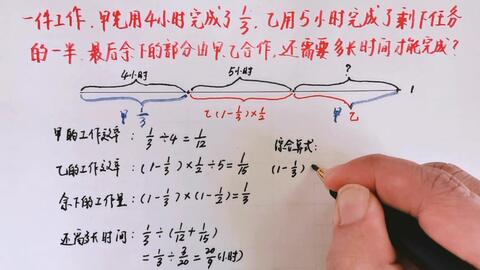 一件工作，甲先用4小时完成了1/3，乙用5小时完成了剩下任务
的一半，最后余下的部分由甲、乙合作，还需要多长时间才能完成？
4小时 5小时 ?
甲 1/3 乙(1-1/3)×1/2 甲 乙 1
甲的工作效率：1/3÷4=1/12
乙的工作效率：(1-1/3)×1/2÷5=1/15
余下的工作量：(1-1/3)×(1-1/2)=1/3
还需多长时间：1/3÷(1/12+1/15)
=1/3÷3/20=20/9(小时)
综合算式：
(1-1/3)